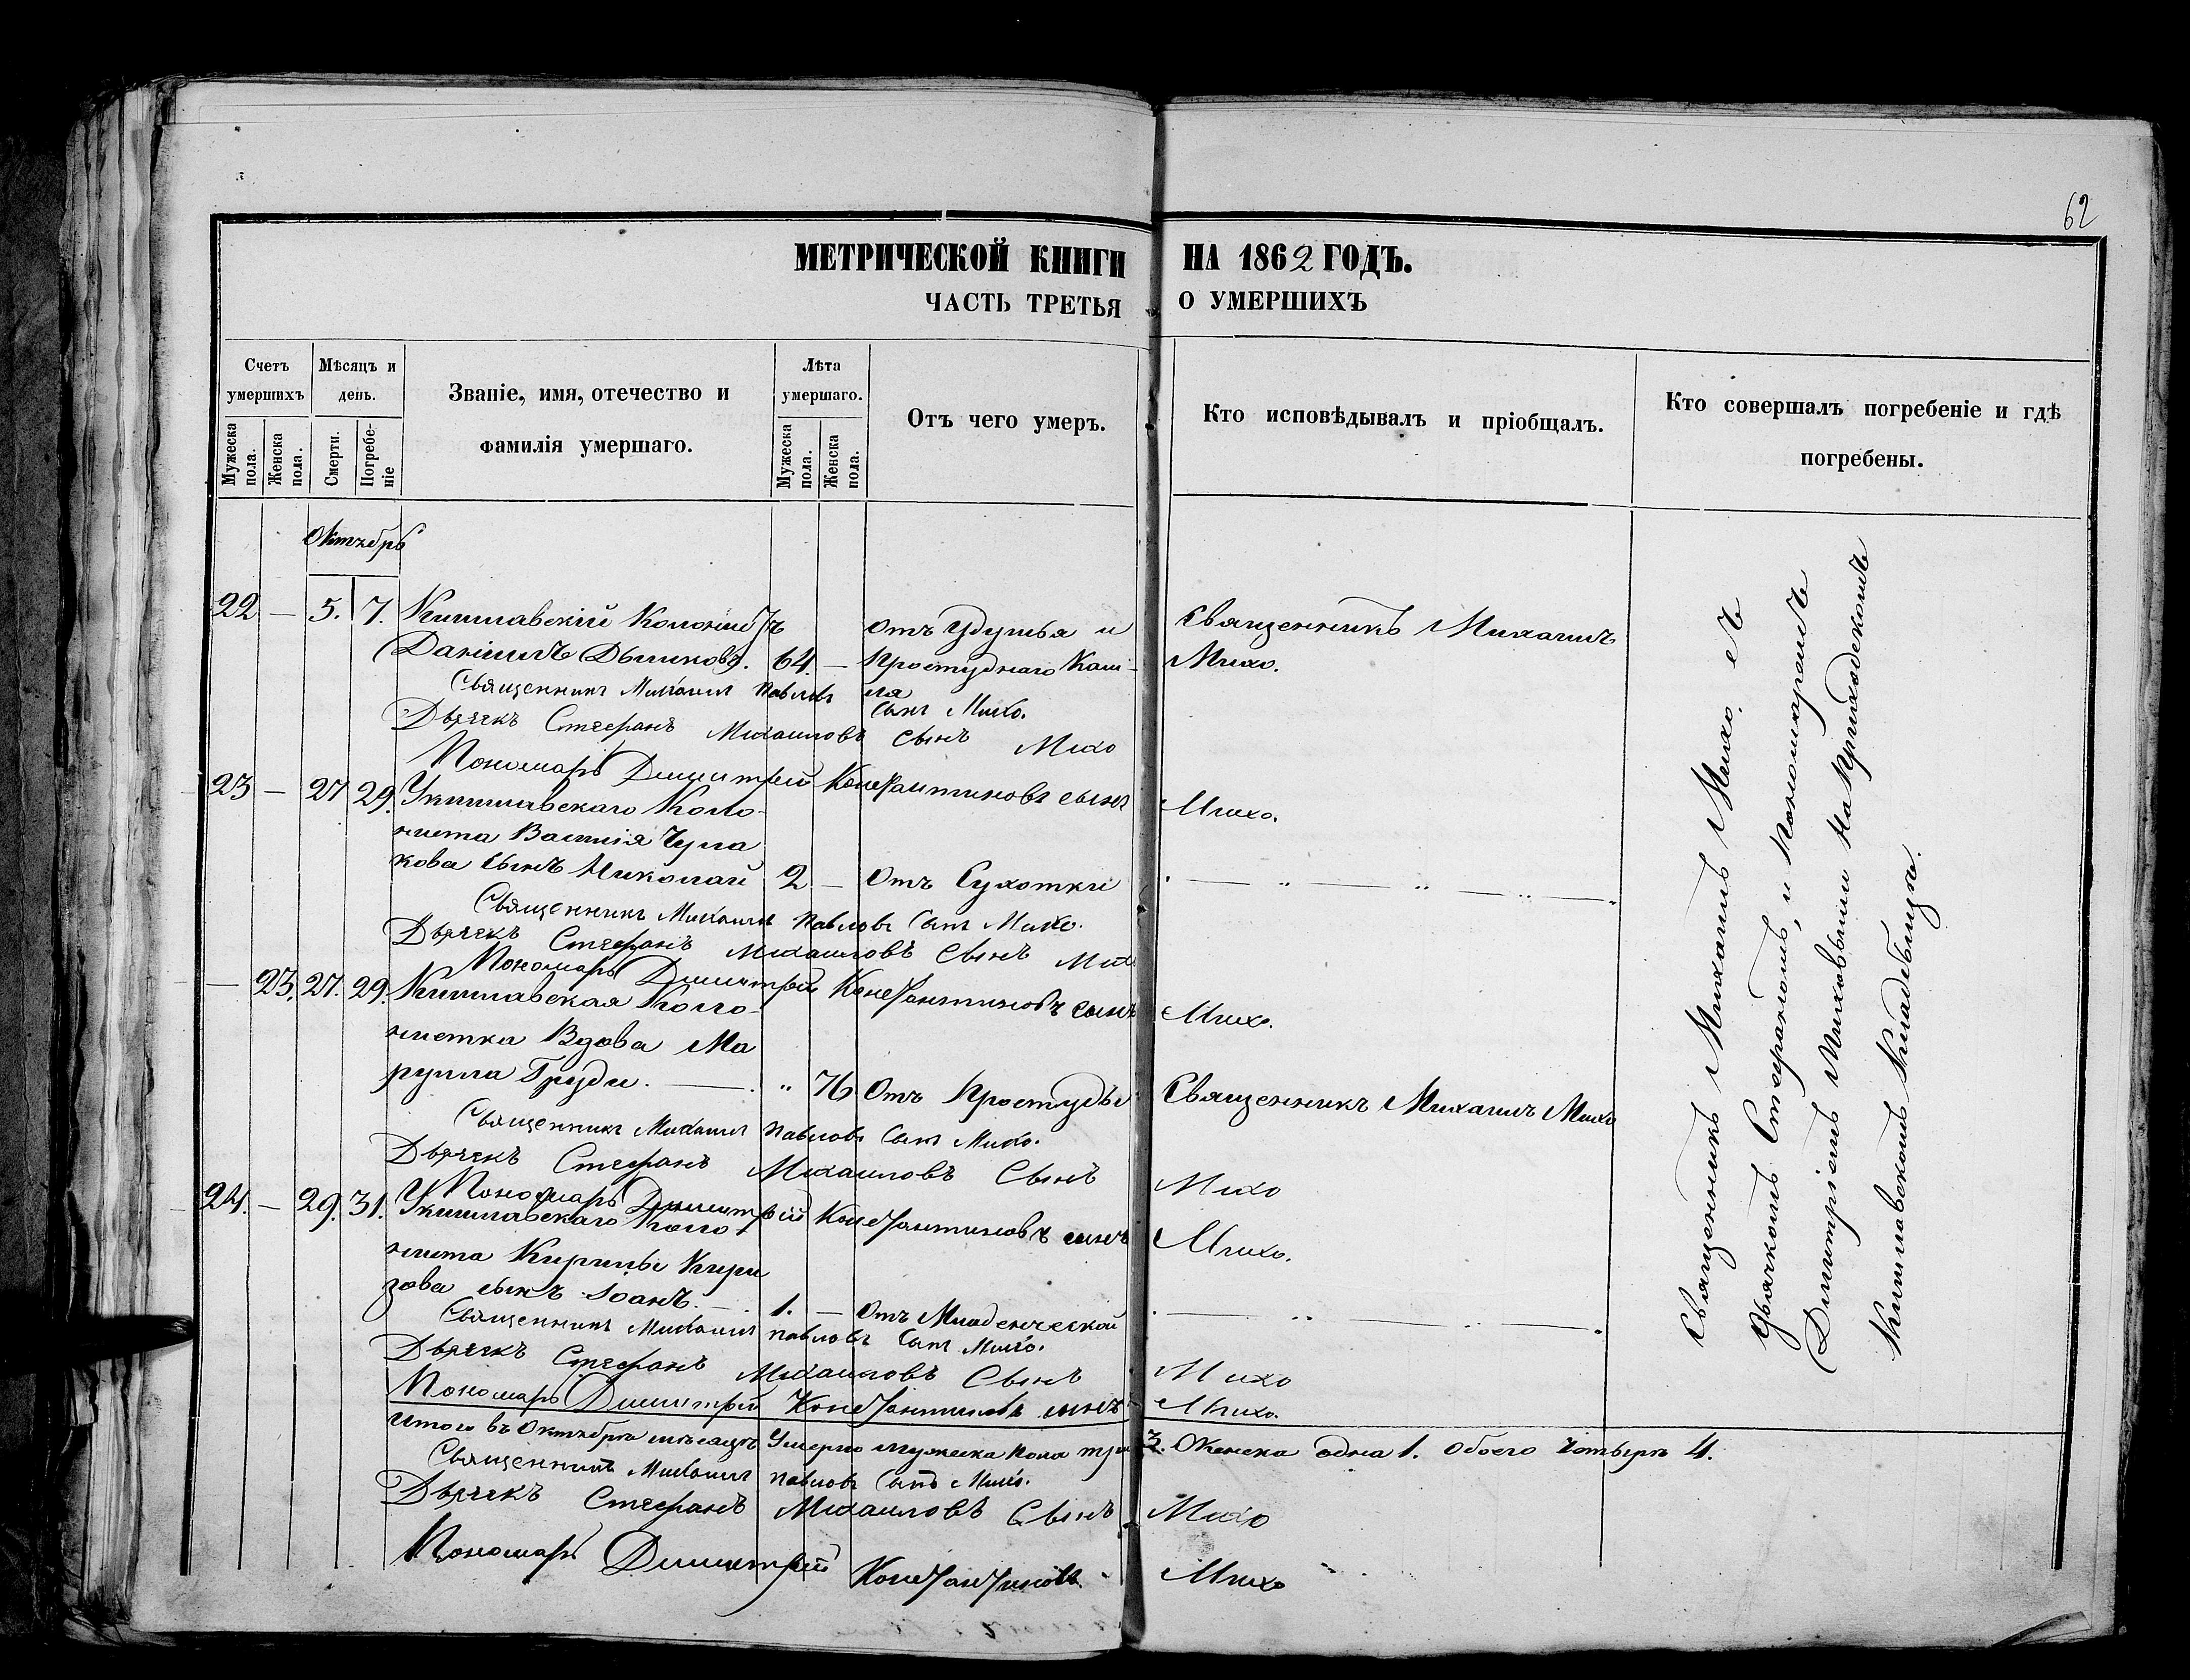 62
МЕТРИЧЕСКОЙ КНИГИ НА 1862 ГОДЪ.
ЧАСТЬ ТРЕТЬЯ О УМЕРШИХЪ
Счетъ умершихъ
Мужеска пола.
Женска пола.
Мѣсяцъ и день.
Смерти.
Погребе-
ніе
Званіе, имя, отечество и
фамилія умершаго.
Лѣта умершаго.
Мужеска пола.
Женска пола.
Отъ чего умеръ.
Кто исповѣдывалъ и пріобщалъ.
Кто совершалъ погребеніе и гдѣ
погребены.
Октябрь
22 — 5. 7. Кишлавскій Колонистъ отъ Удушья и Священникъ Михаилъ
Даніилъ 64 — Простуднаго Каш- Михо.
Священникъ Михаилъ Павловъ ля
сынъ Михо.
Дьячекъ Стефанъ Михаиловъ Сынъ Михо
Пономарь Димитрій Константиновъ сынъ Михо.
23 — 27 29. Укишлавскаго Коло-
ниста Василія Чула
кова сынъ Николай 2 — Отъ Сухотки — „ — „ — „ —
Священникъ Михаилъ Павловъ Сынъ Михо.
Дьячекъ Стефанъ Михаиловъ Сынъ Михо
Пономарь Димитрій Константиновъ сынъ Михо.
— 23. 27. 29. Кишлавская Коло-
нистка Вдова Ма
рулла Груди. — „ 76 Отъ Простуды Священникъ Михаилъ Михо
Священникъ Михаилъ Павловъ Сынъ Михо.
Дьячекъ Стефанъ Михаиловъ Сынъ Михо
Пономарь Димитрій Константиновъ сынъ Михо.
24. — 29. 31. Укишлавскаго Коло-
ниста Кирилы
сынъ Іоанъ. — 1. — Отъ Младенческой — „ — „ —
Священникъ Михаилъ Павловъ Сынъ Михо.
Дьячекъ Стефанъ Михаиловъ Сынъ Михо
Пономарь Димитрій Константиновъ сынъ Михо.
Итого въ Октябрѣ мѣсяцѣ Умерло мужеска пола три 3. Женска одна 1. Обоего Четыре 4.
Священникъ Михаилъ Павловъ Сынъ Михо.
Дьячекъ Стефанъ Михаиловъ Сынъ Михо
Пономарь Димитрій Константиновъ Михо
Священникъ Михаилъ Михо, съ
дьячкомъ Стефаномъ, и Пономаремъ
Димитріемъ Миховыми На Приходскомъ
Кишлавскомъ Кладбищѣ.